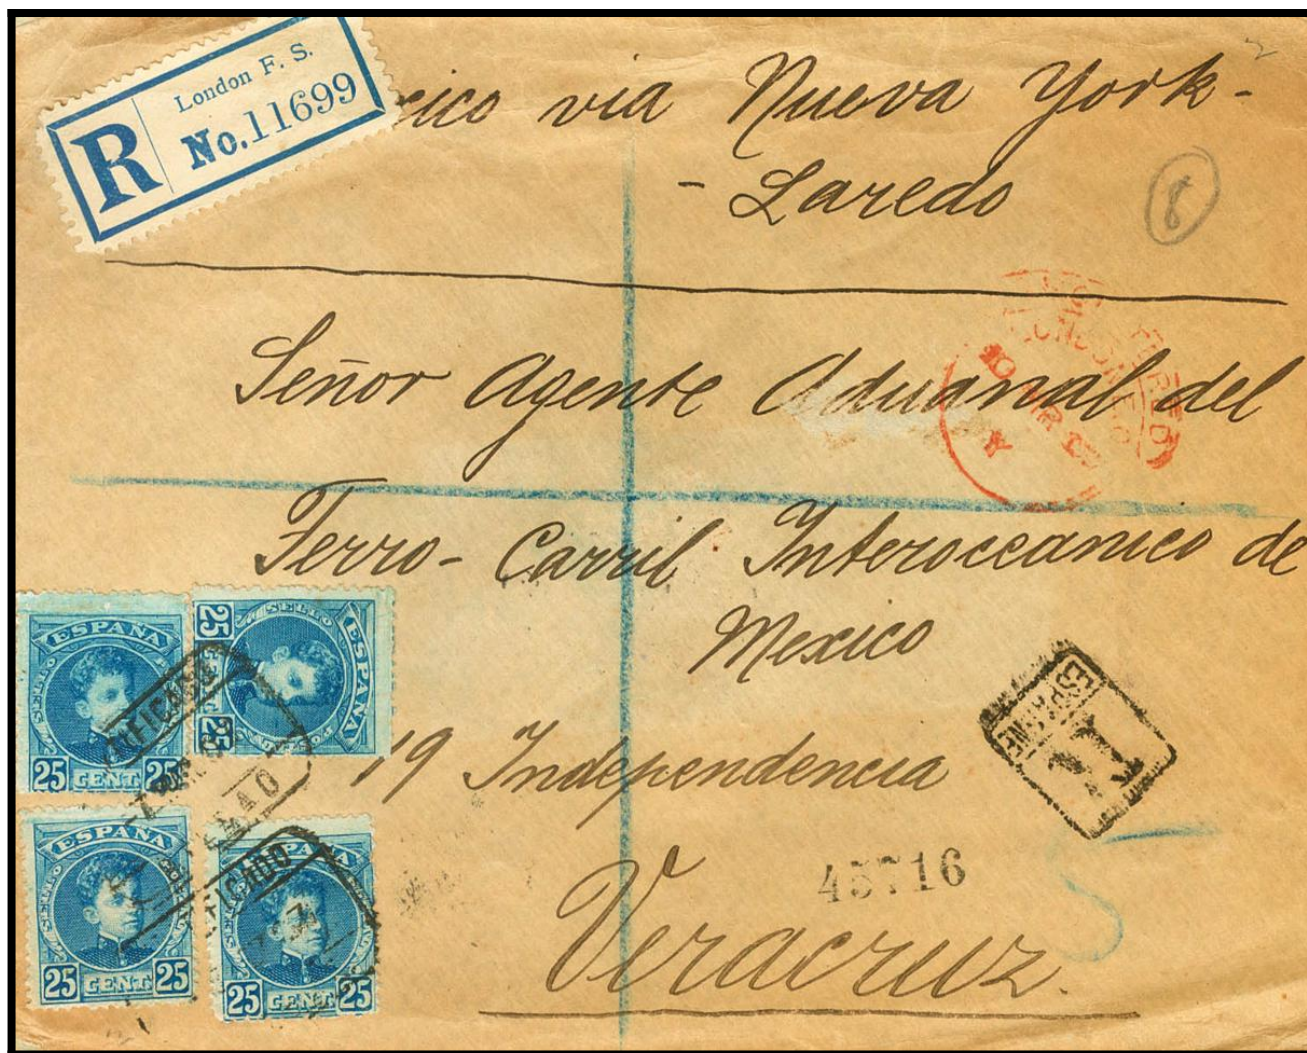 R
London F. S.
No. 11699
xico via Nueva York-
- Laredo
8
Señor Agente Aduanal del
Ferro-Carril Interoceanico de
Mexico
19 Independencia
Veracruz.
45716
ESPAGNE
ESPAÑA
SELLO
25 CENT. 25
ESPAÑA
SELLO
25 25
ESPAÑA
SELLO
25 CENT. 25
ESPAÑA
25 CENT. 25